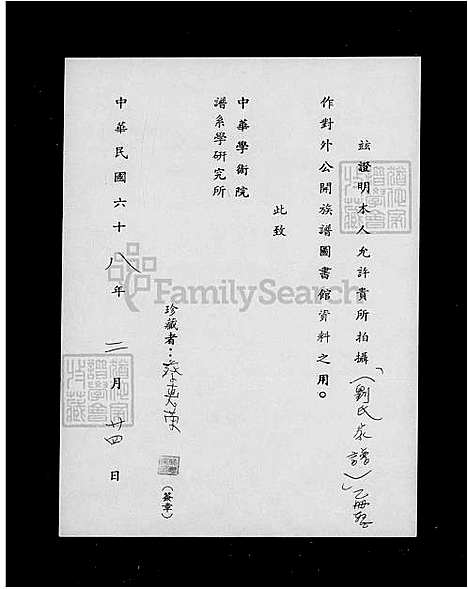 玆證明本人允許貴所拍攝（劉氏家譜）乙冊
作對外公開族譜圖書館資料之用。
此致
中華學術院
譜系學研究所
珍藏者：蔡
（簽章）
中華民國六十八年二月廿四日
FamilySearch